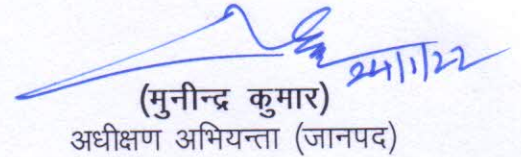 24/1/22
(मुनीन्द्र कुमार)
अधीक्षण अभियन्ता (जानपद)